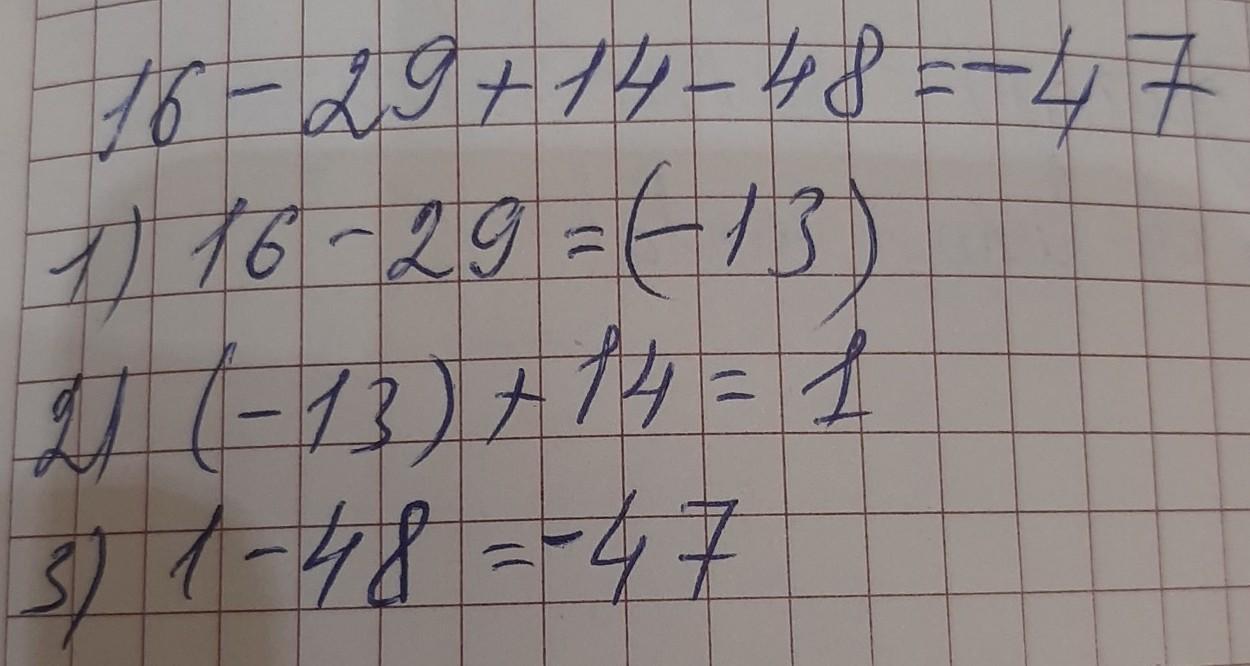 16 - 29 + 14 - 48 = -47
1) 16 - 29 = (-13)
2) (-13) + 14 = 1
3) 1 - 48 = -47